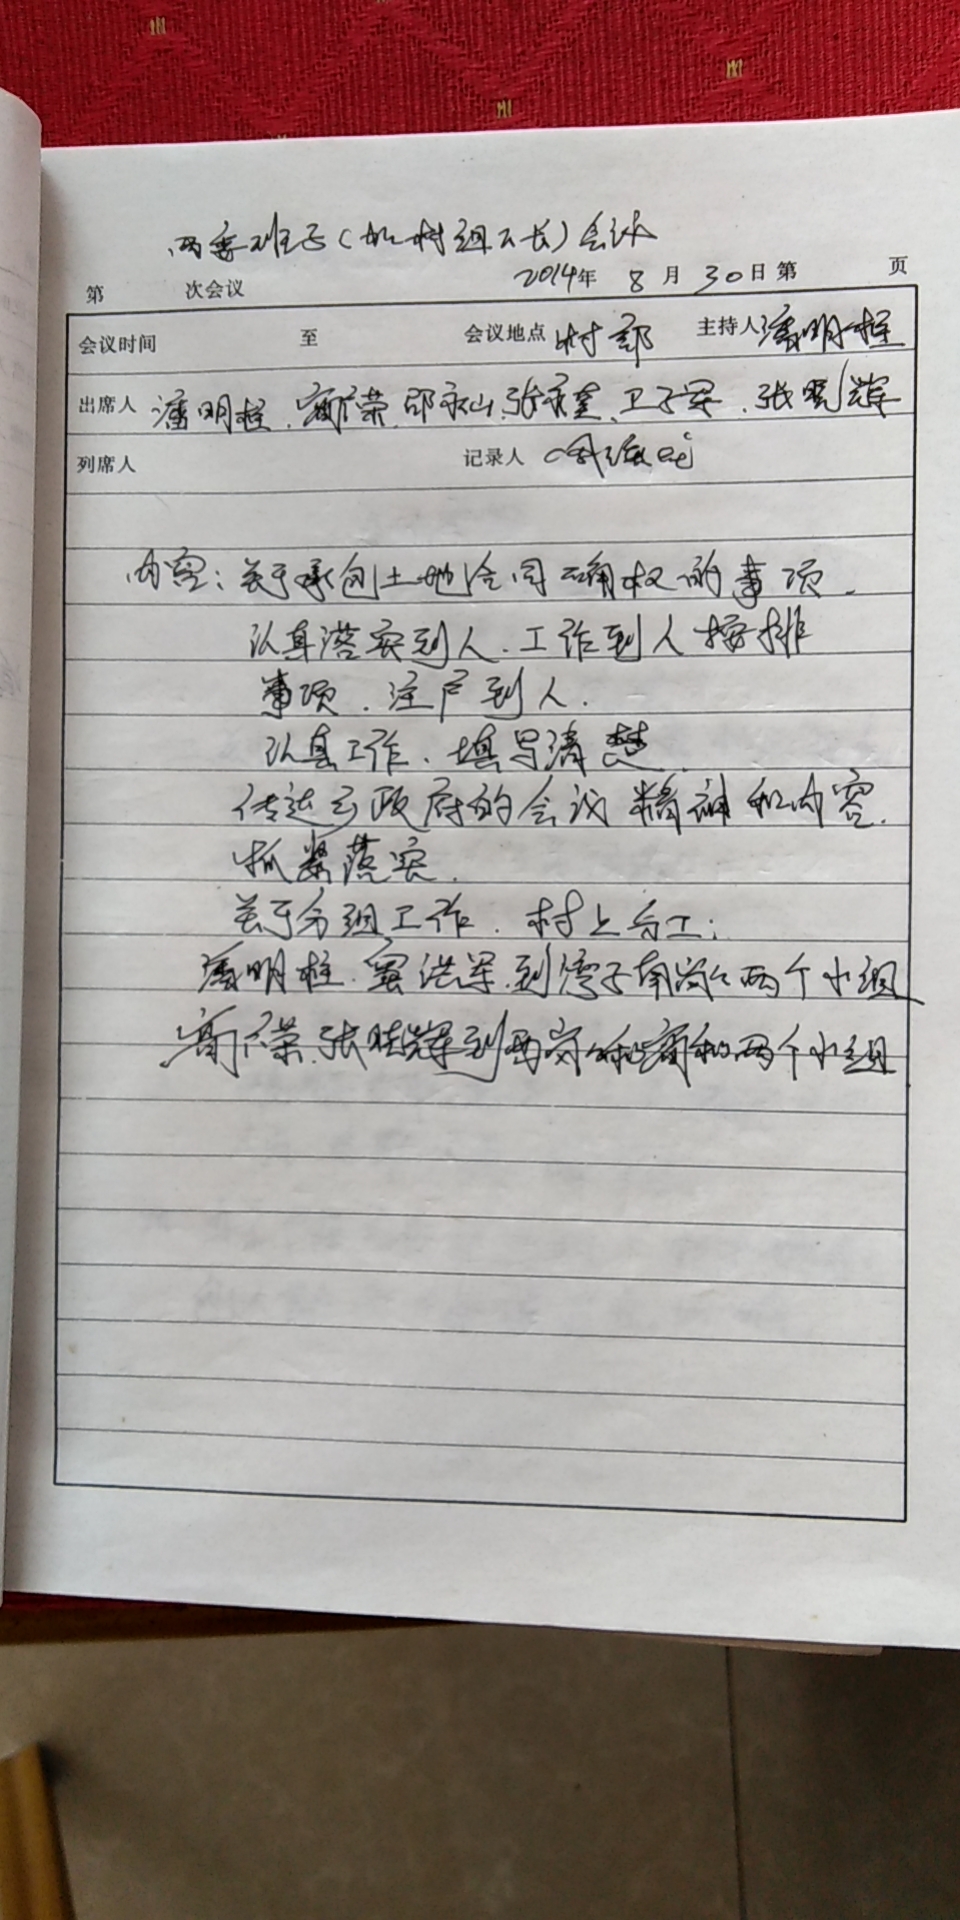 两委班子(加村组组长)会议
2014年 8 月 30日 第 页
第 次会议
会议时间 至 会议地点 村部 主持人 潘明柱
出席人 潘明柱、高 荣、邵永山、张永奎、卫子军、张晓辉
列席人 记录人
内容:关于承包土地合同确权的事项.
认真落实到人、工作到人 按排
事项、注户到人.
认真工作、填写清楚.
传达乡政府的会议精神和内容.
抓紧落实.
关于分组工作、村上分工:
潘明柱、 洪军、到湾子南岗 两个小组
高 荣、张晓辉到西岗 和 两个小组